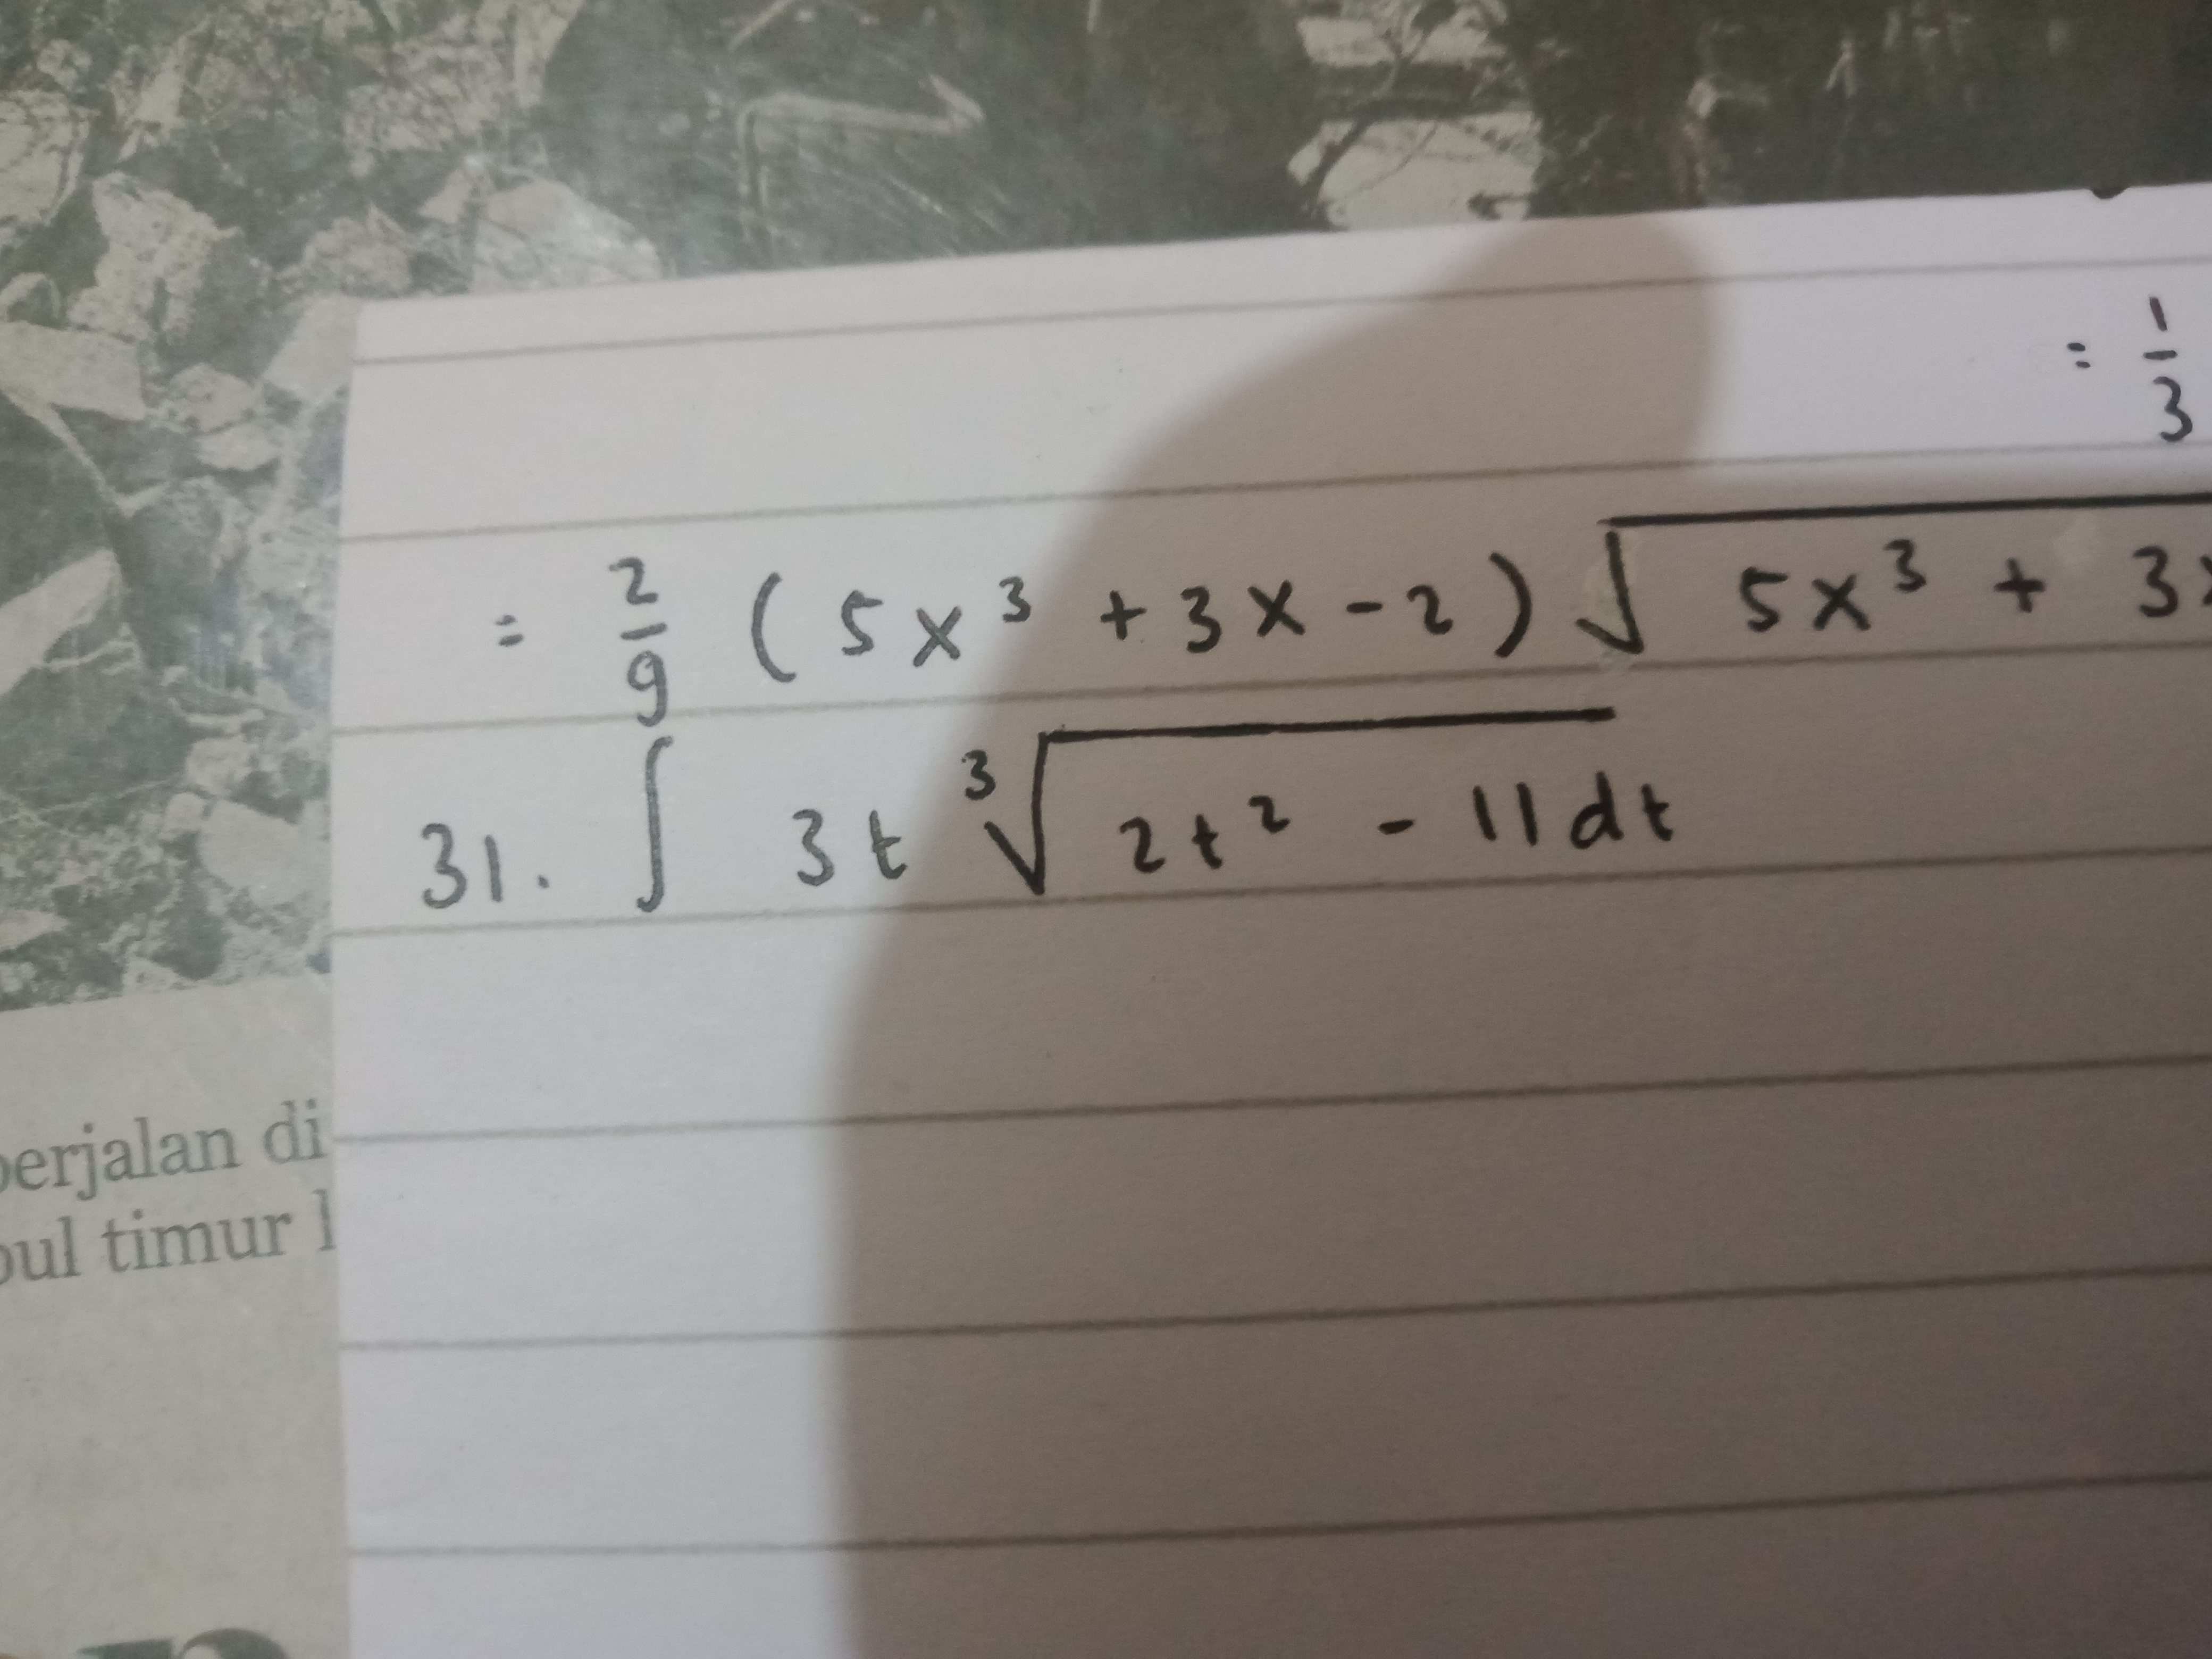 = 1/3
= 2/9 (5x³ + 3x - 2) √5x³ + 3x
31. ∫ 3t ³√2t² - 11 dt
berjalan di
timur